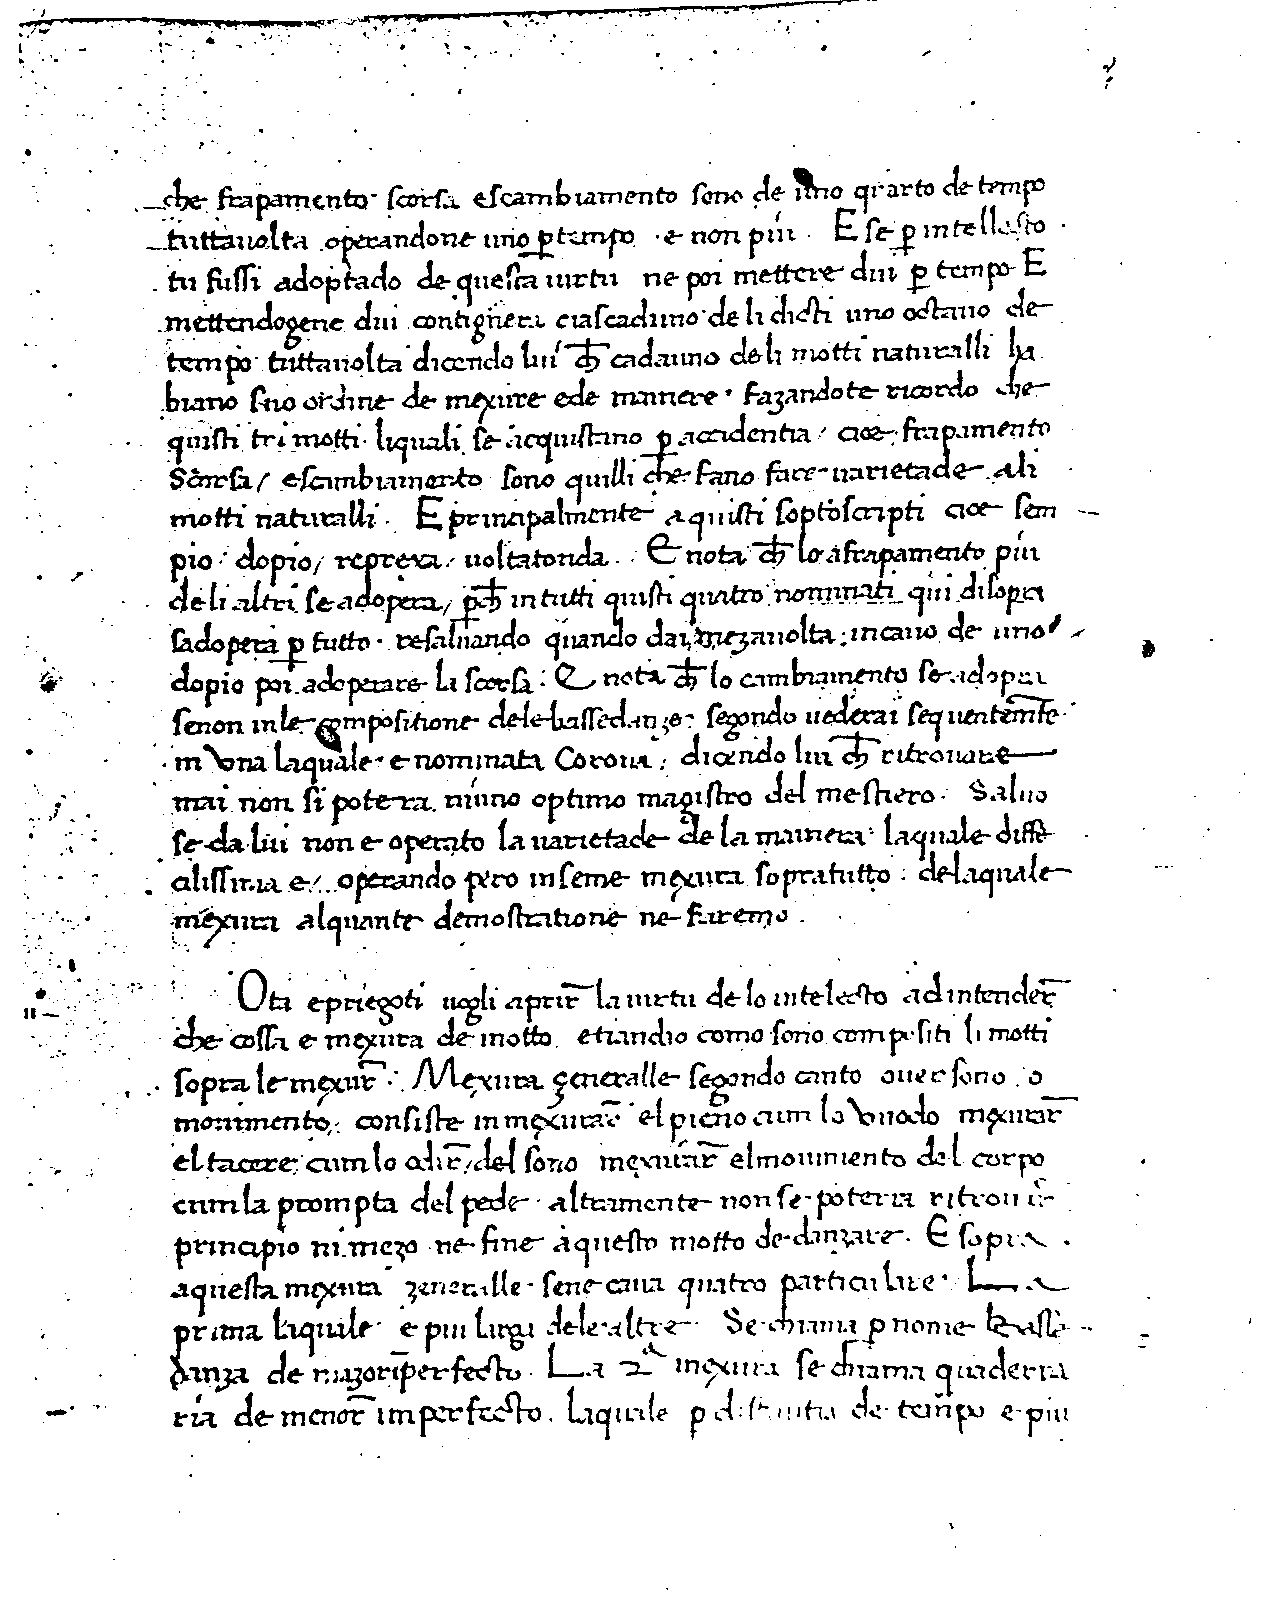 che frapamento· scorsa escambiamento sono de uno quarto de tempo
tuttauolta operandone uno p̱ tempo · e non piu · E se p̱ intellecto
tu fussi adoptado de questa uirtu ne poi mettere dui p̱ tempo E
mettendogene dui contignera ciascaduno de li dicti uno octauo de
tempo tuttauolta dicendo lui ch̄ cadauno deli motti naturalli ha
biano suo ordine de mexure ede manere · fazandote ricordo che
quisti tri motti· liquali se acquistano p̱ accidentia / cioe frapamento
Scorsa / escambiamento sono quilli che fano fare uarietade ali
motti naturalli · E principalmente aquisti soptoscripti cioe sem
pio · dopio / reprexa / uoltatonda . E nota ch̄ lo afrapamento piu
deli altri se adopera / p̱ch̄ in tutti quisti quatro nominati qui disopra
sadopera p̱ tutto · resaluando quando dai mezauolta incauo de uno
dopio poi adoperare la scorsa : E nota ch̄ lo cambiamento se adopra
senon in le compositione dele basse danze : segondo uederai sequentem̄te
in Vna laquale · e nominata Corona ; dicendo lui ch̄ ritrouare
mai non si potera niuno optimo magistro del mestiero · Saluo
se da lui non e operato la uarietade de la mainera laquale diffi
cilissima e / operando pero inseme mexura sopratutto : delaquale
mexura alquante demostratione ne faremo .
Ora e priegoti uogli aprir̄ la uirtu de lo intelecto ad intender̄
che cossa e mexura de motto etiandio como sono compositi li motti
sopra le mexur̄ : Mexura generalle segondo canto ouer sono o
mouimento consiste in mexurar̄ el pieno cum lo Vuodo mexurar̄
el tacere cum lo odir̄ / del sono mexurar̄ el mouimento del corpo
cum la prompta del pede · altramente non se poteria
principio ni mezo ne fine aquesto motto de danzare · E sopra
aquesta mexura generalle · sene caua quatro particulare · La
prima laquale e piu larga dele altre Se chiama p̱ nome bassa
danza de mazor imp̱erfecto . La 2ª mexura se chiama quaderna
ria de menor̄ imperfecto . laquale p̱ distantia de tempo e piu